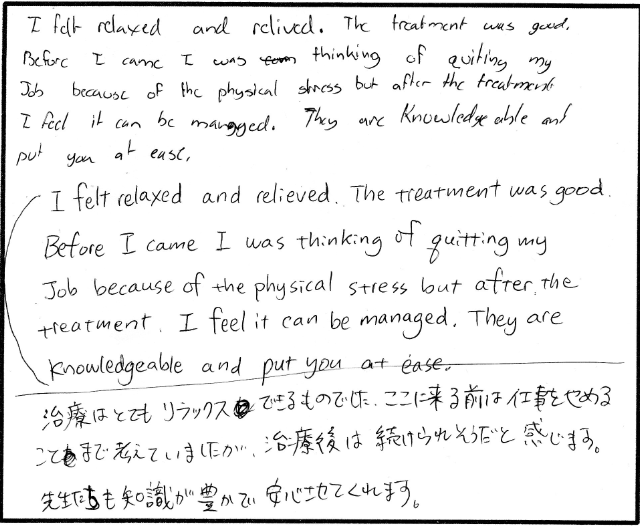 I felt relaxed and relived. The treatment was good.
Before I came I was thinking of quiting my
Job because of the physical stress but after the treatment
I feel it can be managed. They are Knowledgeable and
put you at ease.
I felt relaxed and relieved. The treatment was good.
Before I came I was thinking of quitting my
Job because of the physical stress but after the
treatment. I feel it can be managed. They are
knowledgeable and put you at ease.
治療はとても リラックスできるものでした。ここに来る前は 仕事をやめる
ことまで考えていましたが、治療後は 続けられそうだと 感じます。
先生たちも知識が豊かで 安心させてくれます。